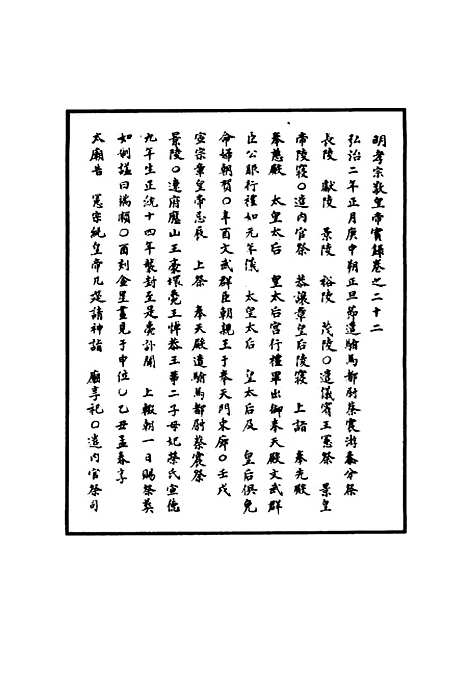 明孝宗敬皇帝實錄卷之二十二
弘治二年正月庚申朔正旦節遣駙馬都尉蔡震游泰分祭
長陵　獻陵　景陵　裕陵　茂陵○遣儀賓王憲祭　景皇
帝陵寢○遣內官祭　恭讓章皇后陵寢　上詣　奉先殿
奉慈殿　太皇太后　皇太后宮行禮畢出御奉天殿文武群
臣公服行禮如元年儀　太皇太后　皇太后及　皇后俱免
命婦朝賀○辛酉文武群臣朝親王于奉天門東廊○壬戌
宣宗章皇帝忌辰　上祭　奉天殿遣駙馬都尉蔡震祭
景陵○遼府應山王豪壞薨王悼恭王第二子母妃榮氏宣德
九年生正統十四年襲封至是薨訃聞　上輟朝一日賜祭葬
如例諡曰端順○酉刻金星晝見于申位○乙丑孟春享
太廟告　憲宗純皇帝几筵請神詣　廟享祀○遣內官祭司